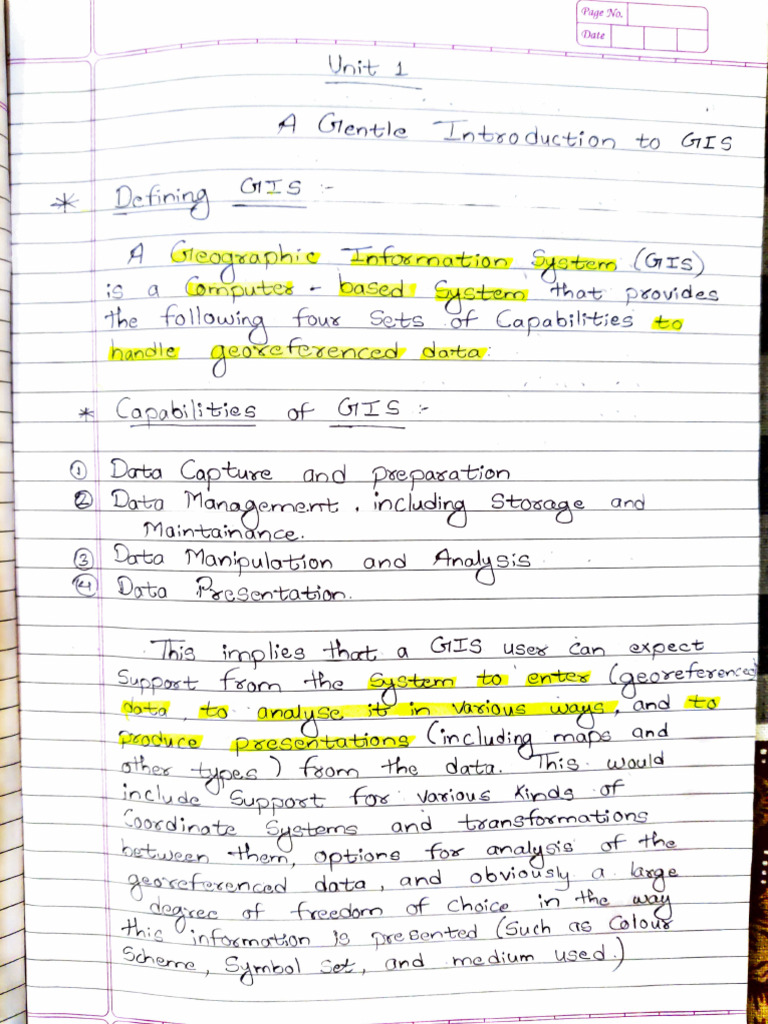 Page No.
Date
Unit 1
A Gentle Introduction to GIS
* Defining GIS :-
A Geographic Information System (GIS)
is a Computer - based System that provides
the following four Sets of Capabilities to
handle georeferenced data:
* Capabilities of GIS :-
① Data Capture and preparation
② Data Management, including Storage and
Maintainance.
③ Data Manipulation and Analysis
④ Data Presentation.
This implies that a GIS user can expect
Support from the System to enter (georeferenced)
data, to analyse it in various ways, and to
produce presentations (including maps and
other types) from the data. This would
include Support for various kinds of
Coordinate Systems and transformations
between them, options for analysis of the
georeferenced data, and obviously a large
degree of freedom of choice in the way
this information is presented (Such as Colour
Scheme, Symbol Set, and medium used.)